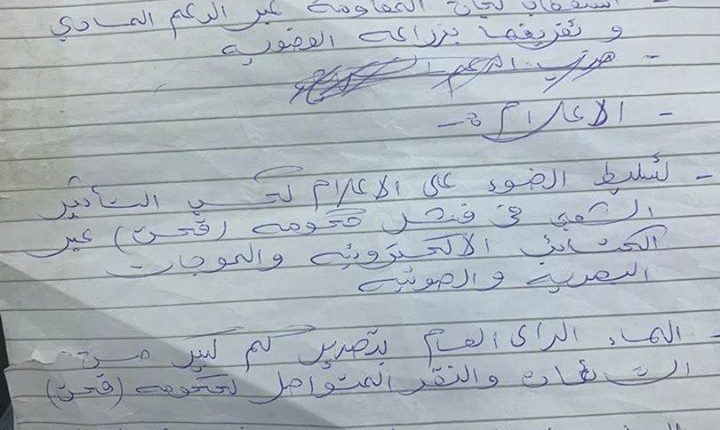 - استقطاب لجان المقاومة عبر الدعم المادي
و تفريقها بزراعة الفضوب
- الاعلام :-
- تسليط الضوء على الاعلام لكسب التأثير
الشعبي في فشل حكومة (قحت) عبر
الكتائب الالكترونية والموجات
البصرية والصوتية
- الهاء الراى العام بتصدير كم كبير من
الشائعات والنقد المتواصل لحكومة (قحت)